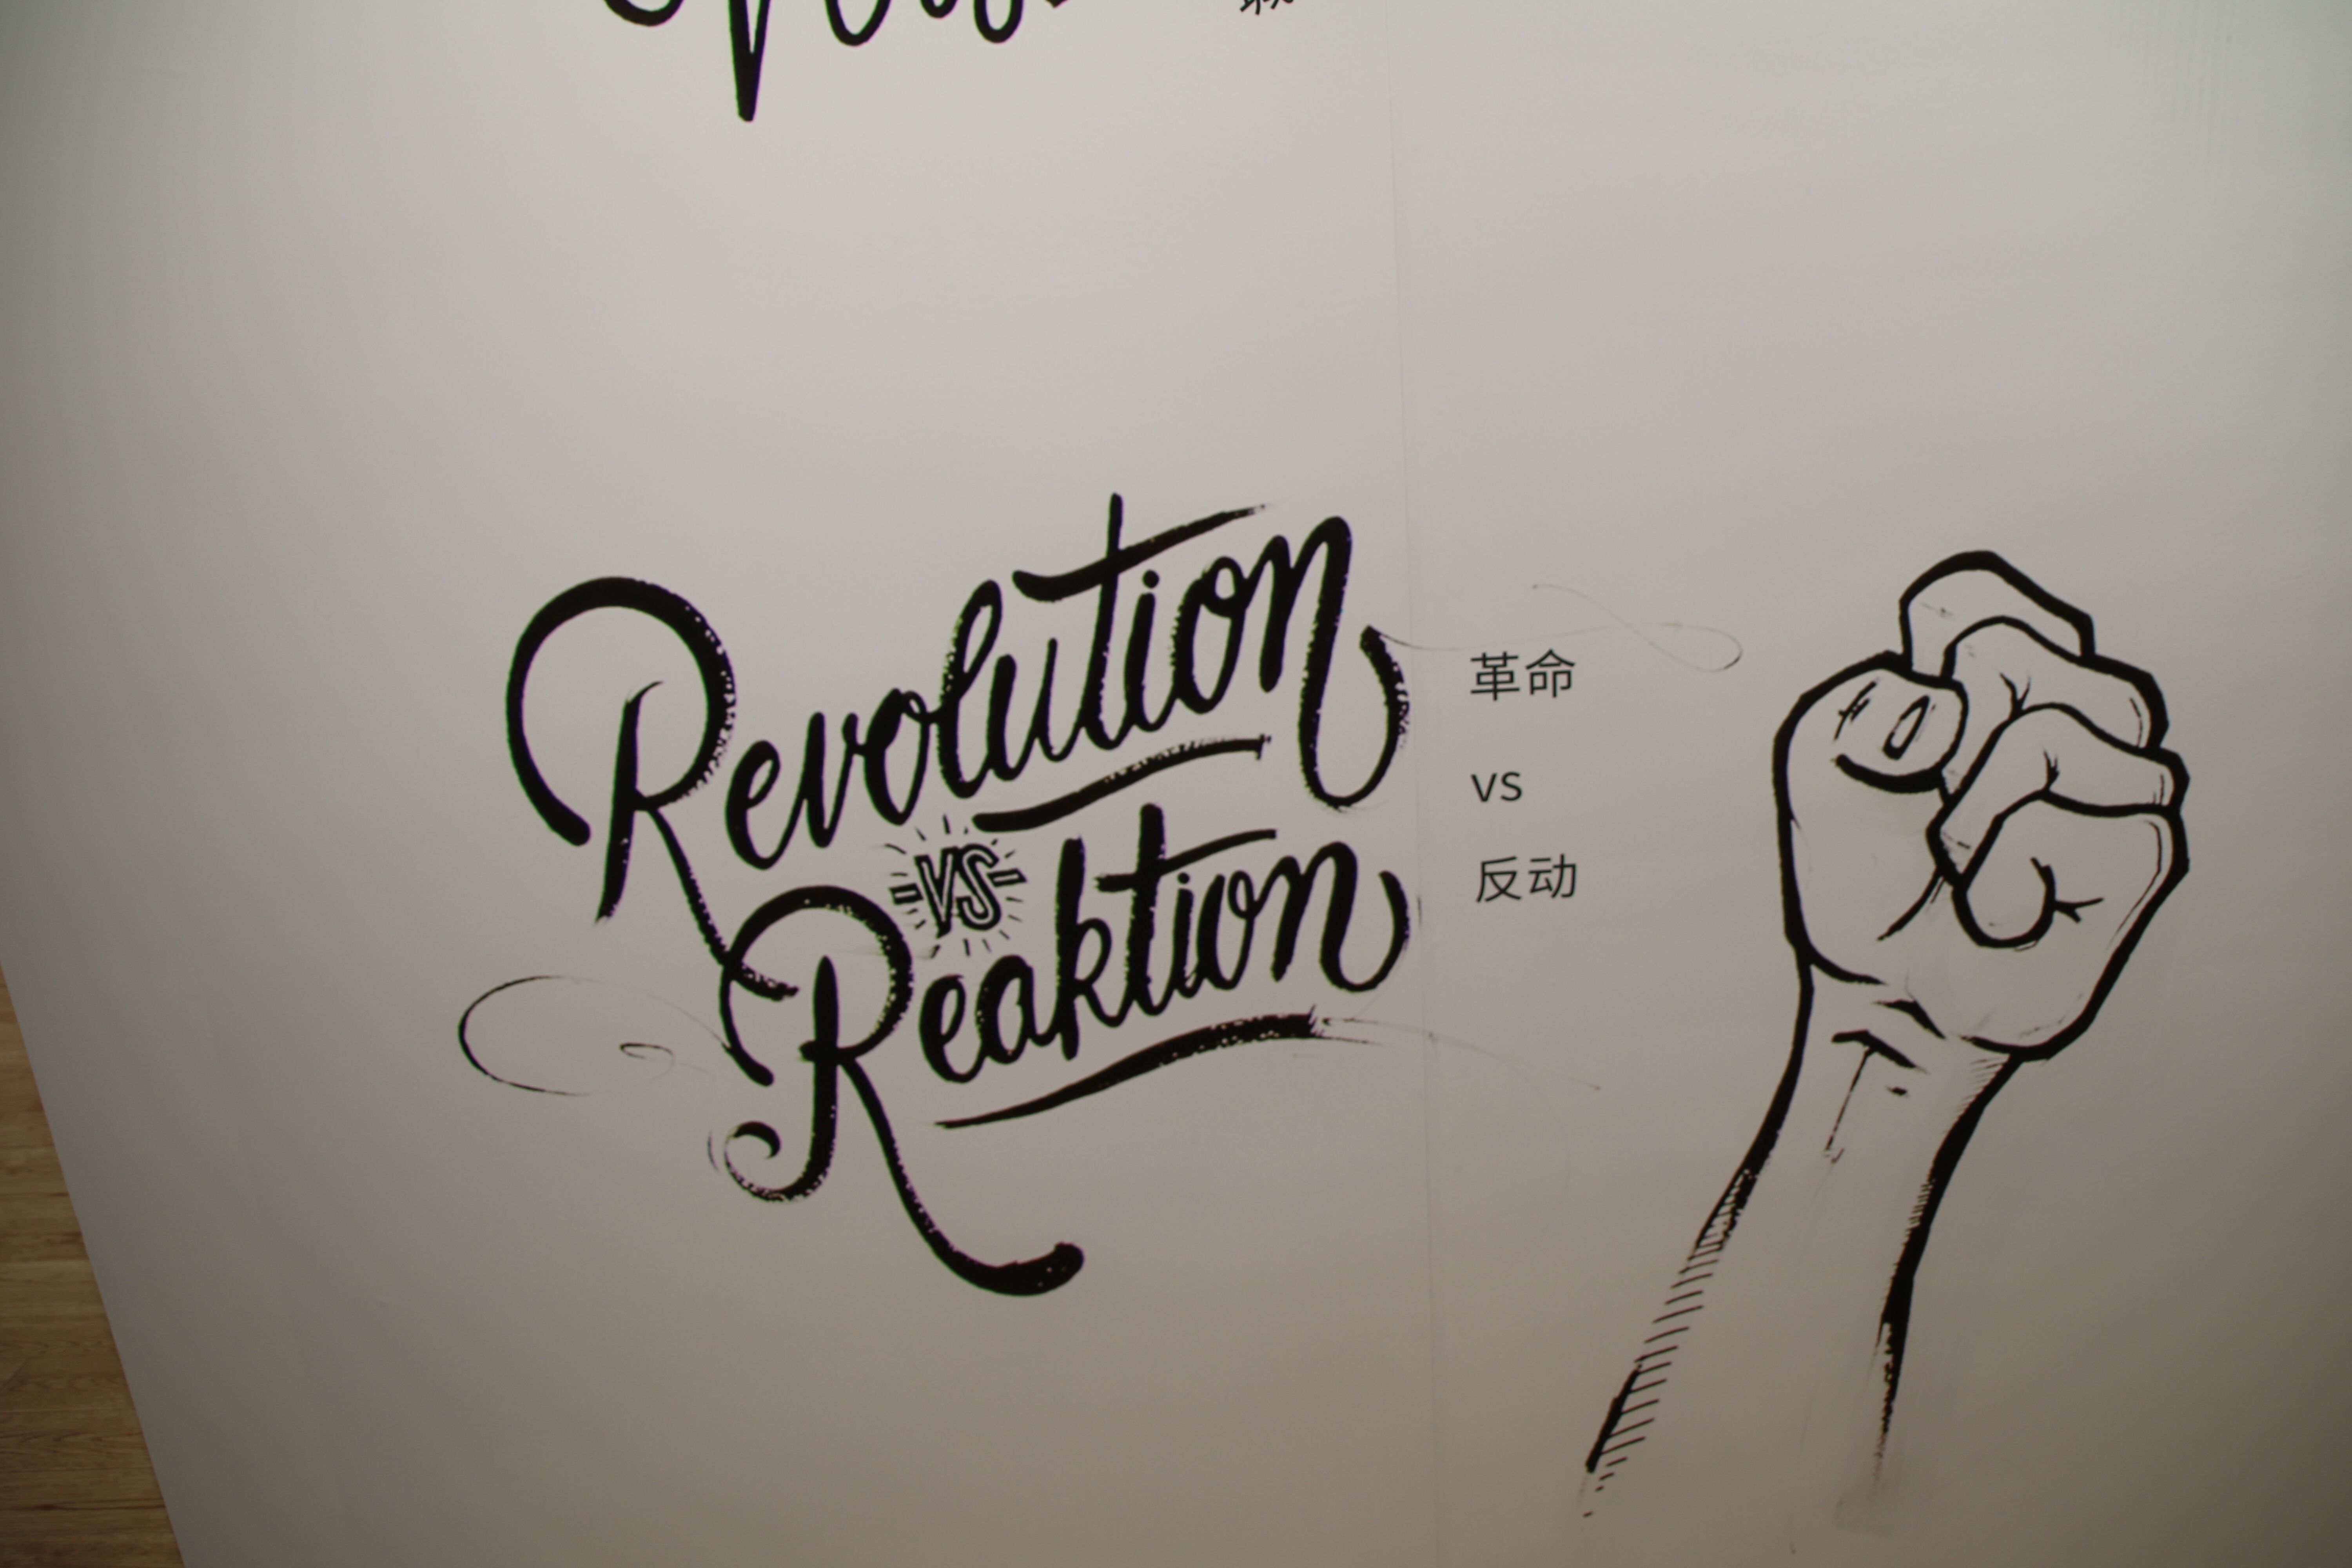 Revolution
vs
Reaktion
革命
vs
反动